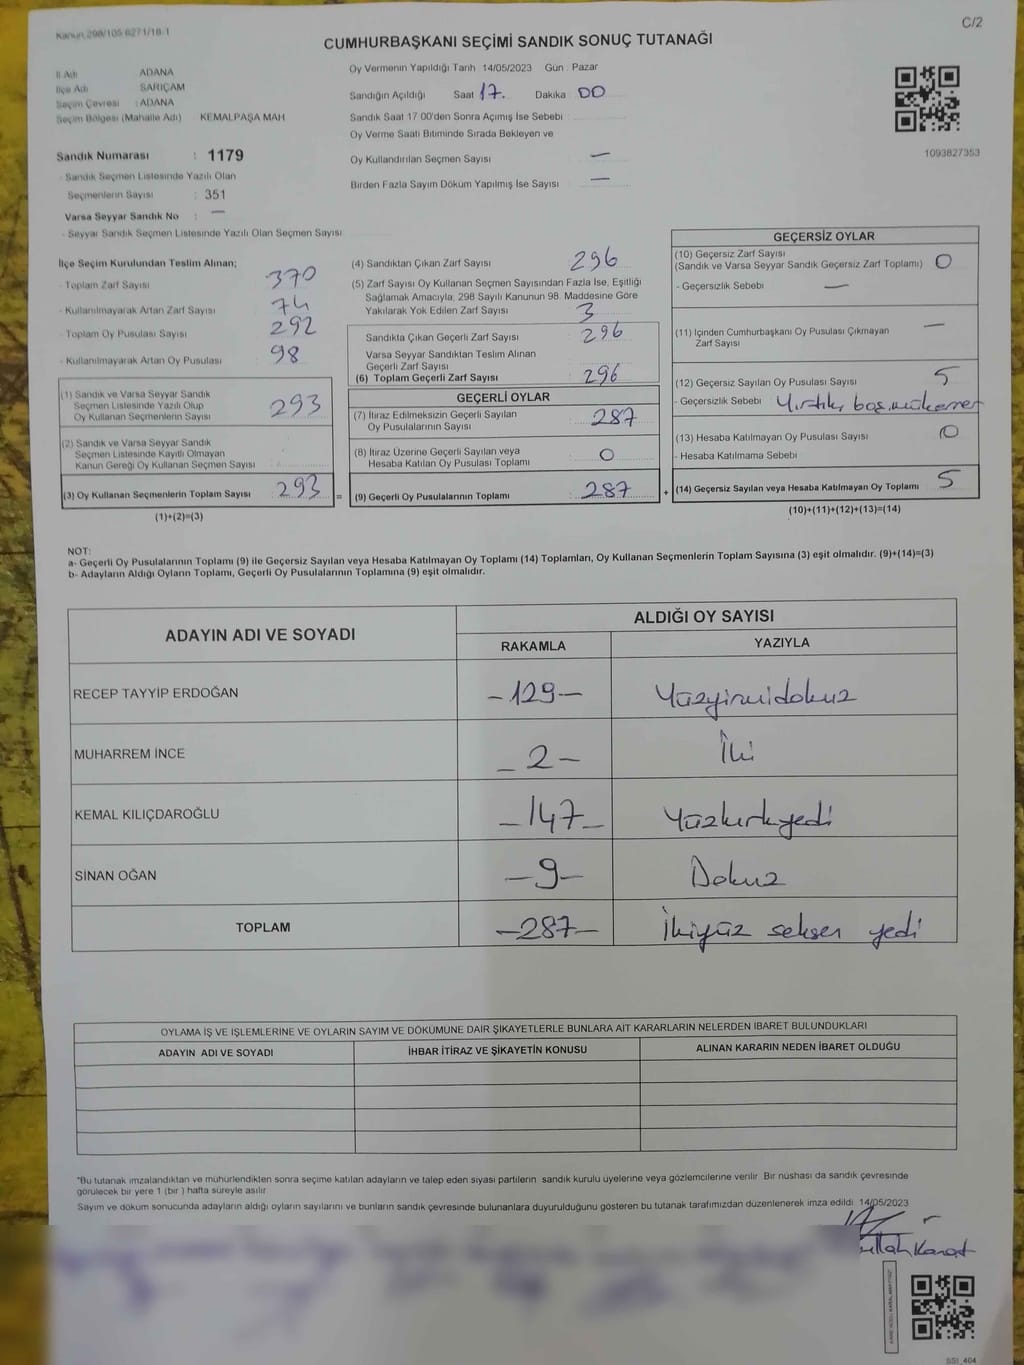 Kanun 298/105 6271/18 1
C/2
CUMHURBAŞKANI SEÇİMİ SANDIK SONUÇ TUTANAĞI
İl Adı ADANA
İlçe Adı SARIÇAM
Seçim Çevresi : ADANA
Seçim Bölgesi (Mahalle Adı) KEMALPAŞA MAH
Sandık Numarası : 1179
- Sandık Seçmen Listesinde Yazılı Olan
Seçmenlerin Sayısı : 351
Varsa Seyyar Sandık No : —
- Seyyar Sandık Seçmen Listesinde Yazılı Olan Seçmen Sayısı
Oy Vermenin Yapıldığı Tarih 14/05/2023 Gün : Pazar
Sandığın Açıldığı Saat 17. Dakika 00
Sandık Saat 17 00'den Sonra Açımış İse Sebebi
Oy Verme Saati Bitiminde Sırada Bekleyen ve
Oy Kullandırılan Seçmen Sayısı —
Birden Fazla Sayım Döküm Yapılmış İse Sayısı —
1093827353
İlçe Seçim Kurulundan Teslim Alınan;
- Toplam Zarf Sayısı 370
- Kullanılmayarak Artan Zarf Sayısı 74
- Toplam Oy Pusulası Sayısı 292
- Kullanılmayarak Artan Oy Pusulası 98
(1) Sandık ve Varsa Seyyar Sandık
Seçmen Listesinde Yazılı Olup
Oy Kullanan Seçmenlerin Sayısı 293
(2) Sandık ve Varsa Seyyar Sandık
Seçmen Listesinde Kayıtlı Olmayan
Kanun Gereği Oy Kullanan Seçmen Sayısı
(3) Oy Kullanan Seçmenlerin Toplam Sayısı 293 =
(1)+(2)=(3)
(4) Sandıktan Çıkan Zarf Sayısı 296
(5) Zarf Sayısı Oy Kullanan Seçmen Sayısından Fazla İse, Eşitliği
Sağlamak Amacıyla, 298 Sayılı Kanunun 98. Maddesine Göre
Yakılarak Yok Edilen Zarf Sayısı 3
Sandıkta Çıkan Geçerli Zarf Sayısı 296
Varsa Seyyar Sandıktan Teslim Alınan
Geçerli Zarf Sayısı
(6) Toplam Geçerli Zarf Sayısı 296
GEÇERLİ OYLAR
(7) İtiraz Edilmeksizin Geçerli Sayılan
Oy Pusulalarının Sayısı 287
(8) İtiraz Üzerine Geçerli Sayılan veya
Hesaba Katılan Oy Pusulası Toplamı 0
(9) Geçerli Oy Pusulalarının Toplamı 287 +
GEÇERSİZ OYLAR
(10) Geçersiz Zarf Sayısı
(Sandık ve Varsa Seyyar Sandık Geçersiz Zarf Toplamı) 0
- Geçersizlik Sebebi —
(11) İçinden Cumhurbaşkanı Oy Pusulası Çıkmayan —
Zarf Sayısı
(12) Geçersiz Sayılan Oy Pusulası Sayısı 5
- Geçersizlik Sebebi Yırtık, boş, mükerrer
(13) Hesaba Katılmayan Oy Pusulası Sayısı 0
- Hesaba Katılmama Sebebi
(14) Geçersiz Sayılan veya Hesaba Katılmayan Oy Toplamı 5
(10)+(11)+(12)+(13)=(14)
NOT:
a- Geçerli Oy Pusulalarının Toplamı (9) ile Geçersiz Sayılan veya Hesaba Katılmayan Oy Toplamı (14) Toplamları, Oy Kullanan Seçmenlerin Toplam Sayısına (3) eşit olmalıdır. (9)+(14)=(3)
b- Adayların Aldığı Oyların Toplamı, Geçerli Oy Pusulalarının Toplamına (9) eşit olmalıdır.
ADAYIN ADI VE SOYADI
ALDIĞI OY SAYISI
RAKAMLA YAZIYLA
RECEP TAYYİP ERDOĞAN -129- Yüzyirmidokuz
MUHARREM İNCE -2- İki
KEMAL KILIÇDAROĞLU -147- Yüzkırkyedi
SİNAN OĞAN -9- Dokuz
TOPLAM -287- İkiyüz seksen yedi
OYLAMA İŞ VE İŞLEMLERİNE VE OYLARIN SAYIM VE DÖKÜMÜNE DAİR ŞİKAYETLERLE BUNLARA AİT KARARLARIN NELERDEN İBARET BULUNDUKLARI
ADAYIN ADI VE SOYADI İHBAR İTİRAZ VE ŞİKAYETİN KONUSU ALINAN KARARIN NEDEN İBARET OLDUĞU
*Bu tutanak imzalandıktan ve mühürlendikten sonra seçime katılan adayların ve talep eden siyasi partilerin sandık kurulu üyelerine veya gözlemcilerine verilir Bir nüshası da sandık çevresinde
görülecek bir yere 1 (bir ) hafta süreyle asılır
Sayım ve döküm sonucunda adayların aldığı oyların sayılarını ve bunların sandık çevresinde bulunanlara duyurulduğunu gösteren bu tutanak tarafımızdan düzenlenerek imza edildi 14/05/2023
SSİ 404